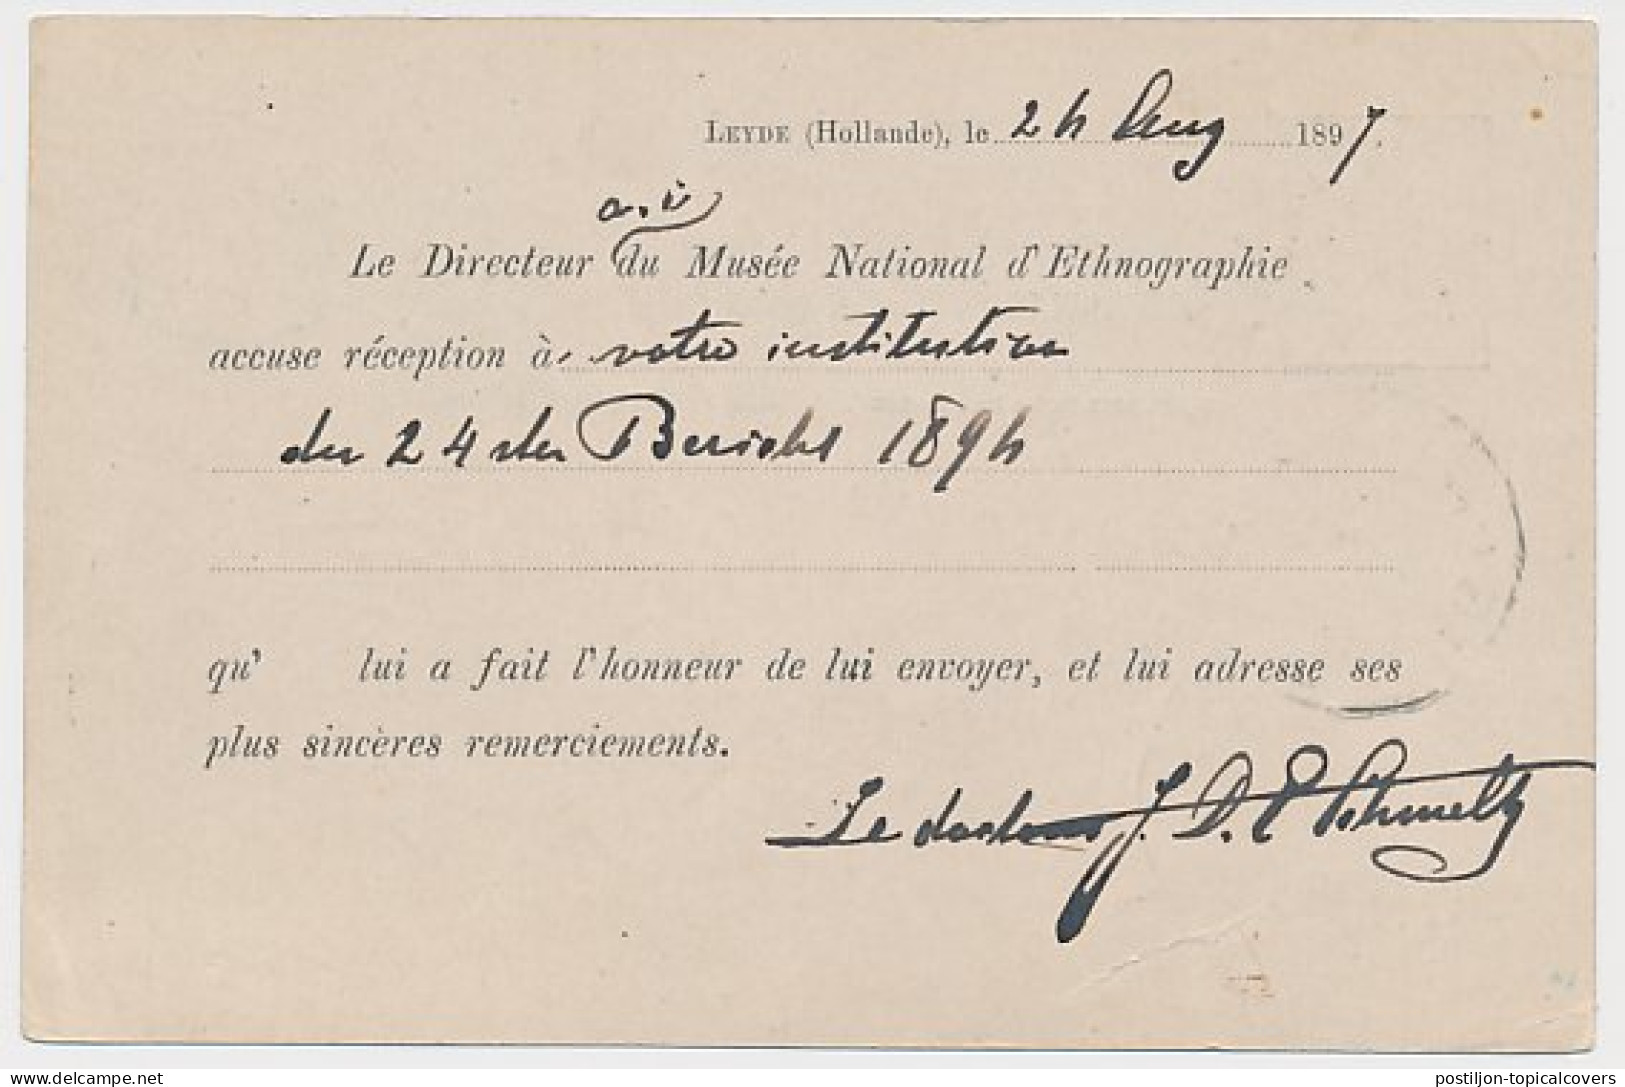 LEYDE (Hollande), le 24 Aug 1897.
a.i
Le Directeur du Musée National d'Ethnographie
accuse réception à votre institution
der 24 der Bericht 1894
qu' lui a fait l'honneur de lui envoyer, et lui adresse ses
plus sincères remerciements.
Le docteur J. D. E Schmeltz
postiljon-topicalcovers
delcampe.net